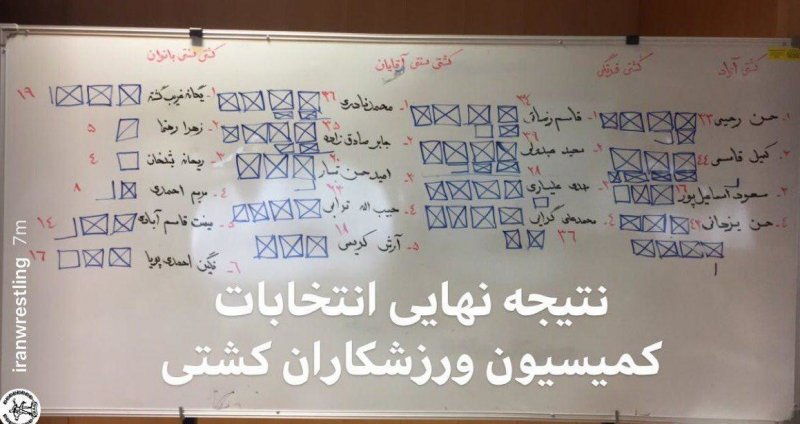 کشتی آزاد
۱- حسن رحیمی ۳۳
۲- کمیل قاسمی ۴۴
۳- مسعود اسماعیل پور ۱۶
۴- حسن یزدانی ۴۲
کشتی فرنگی
۱- قاسم رضائی ۳۴
۲- سعید عبدولی ۳۹
۳- مهدی علیاری ۲۸
۴- محمدعلی گرایی ۳۶
کشتی سنتی آقایان
۱- محمد نادری ۳۶
۲- جابر صادق زاده ۳۵
۳- امید حسن تبار ۲۰
۴- حبیب اله ترابی ۲۳
۵- آرش کریمی ۱۸
کشتی سنتی بانوان
۱- یگانه غریب گشته ۱۹
۲- زهرا رهنما ۵
۳- ریحانه ۴
۴- مریم احمدی ۸
۵- قاسم آبادی ۱۴
۶- نگین احمدی پویا ۱۶
نتیجه نهایی انتخابات
کمیسیون ورزشکاران کشتی
iranwrestling 7m